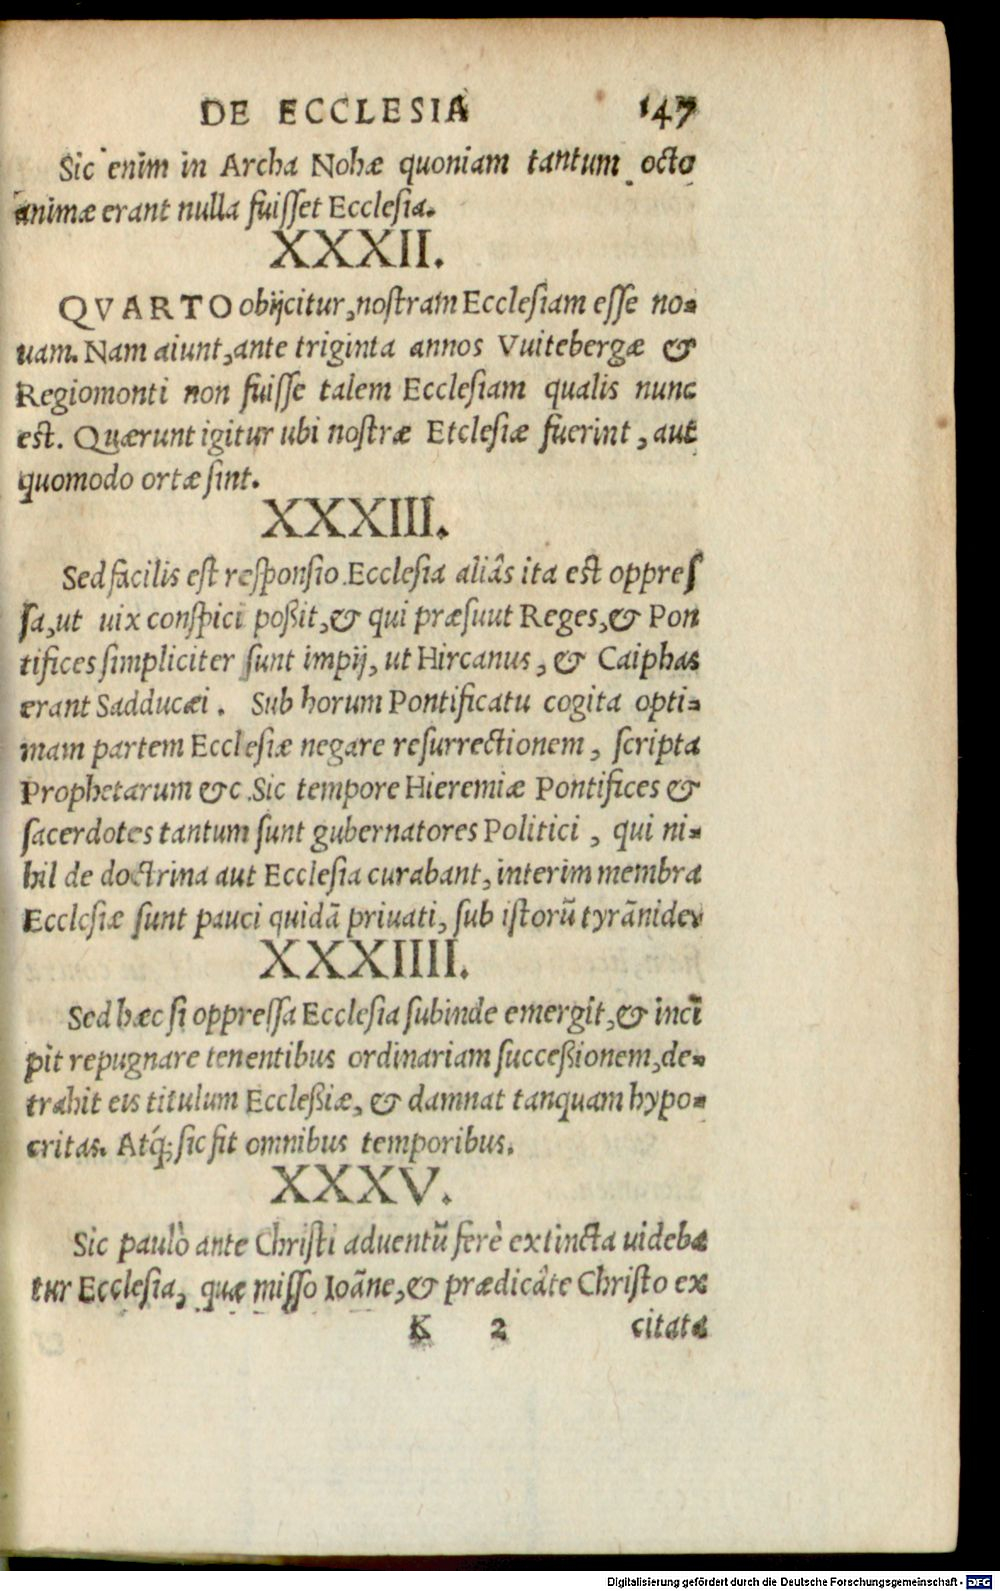 DE ECCLESIA 147
Sic enim in Archa Nohæ quoniam tantum octo
animæ erant nulla fuiſſet Eccleſia.
XXXII.
QVARTO obijcitur, noſtram Eccleſiam eſſe no-
uam. Nam aiunt, ante triginta annos Vuitebergæ &
Regiomonti non fuiſſe talem Eccleſiam qualis nunc
eſt. Quærunt igitur ubi noſtræ Etcleſiæ fuerint, aut
quomodo ortæ ſint.
XXXIII.
Sed facilis eſt reſponſio. Eccleſia aliâs ita eſt oppreſ
ſa, ut uix conſpici poßit, & qui præsuut Reges, & Pon
tifices ſimpliciter ſunt impij, ut Hircanus, & Caiphas
erant Sadducæi. Sub horum Pontificatu cogita opti-
mam partem Eccleſiæ negare reſurrectionem, ſcripta
Prophetarum &c. Sic tempore Hieremiæ Pontifices &
ſacerdotes tantum ſunt gubernatores Politici, qui ni-
hil de doctrina aut Eccleſia curabant, interim membra
Eccleſiæ ſunt pauci quidã priuati, ſub iſtorũ tyrãnide.
XXXIIII.
Sed hæc ſi oppreſſa Eccleſia ſubinde emergit, & inci
pit repugnare tenentibus ordinariam ſucceßionem, de-
trahit eis titulum Eccleßiæ, & damnat tanquam hypo-
critas. Atq́; ſic fit omnibus temporibus.
XXXV.
Sic paulò ante Chriſti aduentũ ferè extincta uideba
tur Eccleſia, quæ miſſo Ioãne, & prædicãte Chriſto ex
K 2 citata
Digitalisierung gefördert durch die Deutsche Forschungsgemeinschaft - DFG